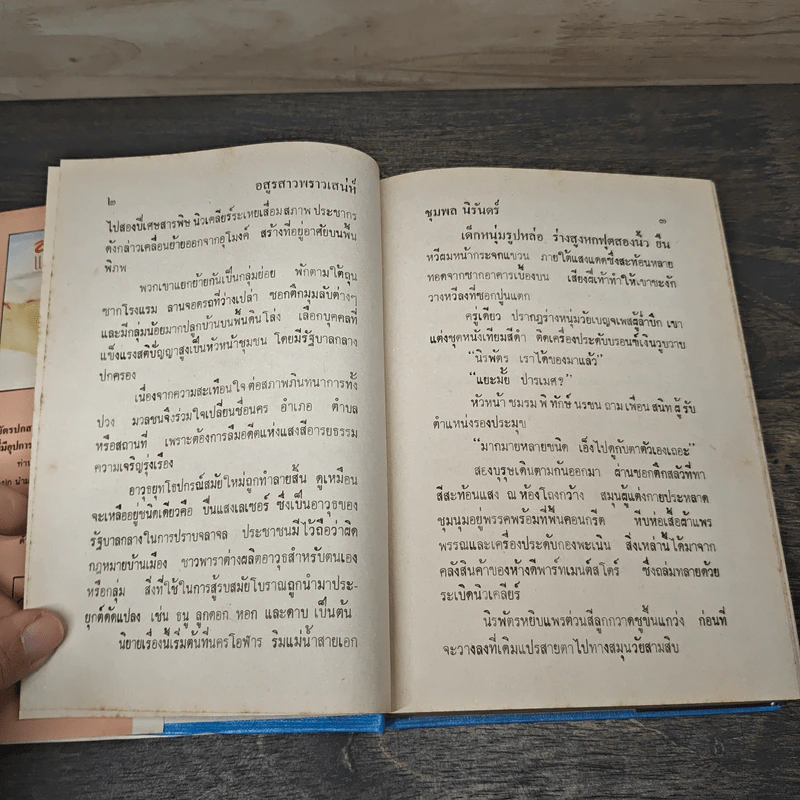 ๒
อสูรสาวพราวเสน่ห์
ไปสองปีเศษสารพิษ นิวเคลียร์ระเหยเสื่อมสภาพ ประชากร
ดังกล่าวเคลื่อนย้ายออกจากอุโมงค์ สร้างที่อยู่อาศัยบนพื้น
พิภพ
พวกเขาแยกย้ายกันเป็นกลุ่มย่อย พักตามใต้ถุน
ซากโรงแรม ลานจอดรถที่ว่างเปล่า ซอกตึกมุมลับต่างๆ
และมีกลุ่มน้อยมากปลูกบ้านบนพื้นดินโล่ง เลือกบุคคลที่
แข็งแรงสติปัญญาสูงเป็นหัวหน้าชุมชน โดยมีรัฐบาลกลาง
ปกครอง
เนื่องจากความสะเทือนใจ ต่อสภาพภินทนาการทั้ง
ปวง มวลชนจึงร่วมใจเปลี่ยนชื่อนคร อำเภอ ตำบล
หรือสถานที่ เพราะต้องการลืมอดีตแห่งแสงสีอารยธรรม
ความเจริญรุ่งเรือง
อาวุธยุทโธปกรณ์สมัยใหม่ถูกทำลายสิ้น ดูเหมือน
จะเหลืออยู่ชนิดเดียวคือ ปืนแสงเลเซอร์ ซึ่งเป็นอาวุธของ
รัฐบาลกลางในการปราบจลาจล ประชาชนมีไว้ถือว่าผิด
กฎหมายบ้านเมือง ชาวพาราต่างผลิตอาวุธสำหรับตนเอง
หรือกลุ่ม สิ่งที่ใช้ในการสู้รบสมัยโบราณถูกนำมาประ-
ยุกต์ดัดแปลง เช่น ธนู ลูกดอก หอก และดาบ เป็นต้น
นิยายเรื่องนี้เริ่มต้นที่นครโอฬาร ริมแม่น้ำสายเอก
ชุมพล นิรันดร์
๓
เด็กหนุ่มรูปหล่อ ร่างสูงหกฟุตสองนิ้ว ยืน
หวีผมหน้ากระจกแขวน ภายใต้แสงแดดซึ่งสะท้อนหลาย
ทอดจากซากอาคารเบื้องบน เสียงฝีเท้าทำให้เขาชะงัก
วางหวีลงที่ซอกปูนแตก
ครู่เดียว ปรากฏร่างหนุ่มวัยเบญจเพสผู้ล่ำบึก เขา
แต่งชุดหนังเทียมสีดำ ติดเครื่องประดับบรอนซ์เงินวูบวาบ
“นิรพัตร เราได้ของมาแล้ว”
“แยะมั้ย ปารเมศ?”
หัวหน้า ชมรม พิทักษ์ นรชน ถาม เพื่อน สนิท ผู้ รับ
ตำแหน่งรองประมุข
“มากมายหลายชนิด เอ็งไปดูกับตาตัวเองเถอะ”
สองบุรุษเดินตามกันออกมา ผ่านซอกตึกสลัวที่ทา
สีสะท้อนแสง ณ ห้องโถงกว้าง สมุนผู้แต่งกายประหลาด
ชุมนุมอยู่พรรคพร้อมที่พื้นคอนกรีต หีบห่อเสื้อผ้าแพร
พรรณและเครื่องประดับกองพะเนิน สิ่งเหล่านี้ได้มาจาก
คลังสินค้าของห้างดีพาร์ทเมนต์สโตร์ ซึ่งถล่มทลายด้วย
ระเบิดนิวเคลียร์
นิรพัตรหยิบแพรต่วนสีลูกกวาดชูขึ้นแกว่ง ก่อนที่
จะวางลงที่เดิมแปรสายตาไปทางสมุนวัยสามสิบ